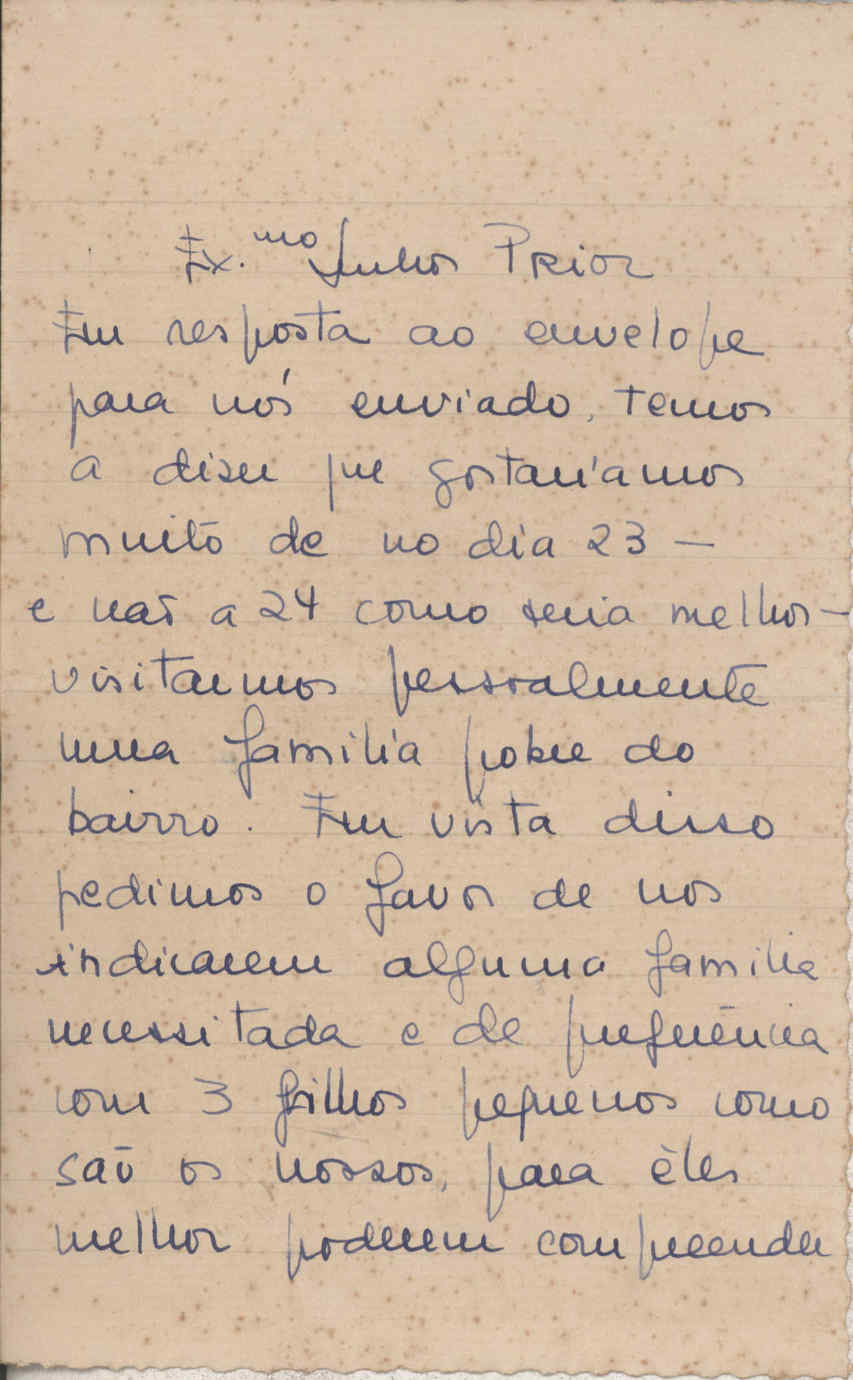 Ex.mo Senhor Prior
Em resposta ao envelope
para nós enviado, temos
a dizer que gostaríamos
muito de no dia 23 —
e não a 24 como seria melhor —
visitarmos pessoalmente
uma família pobre do
bairro. Em vista disso
pedimos o favor de nos
indicarem alguma familia
necessitada e de frequência
com 3 filhos pequenos como
são os nossos, para êles
melhor poderem compreender